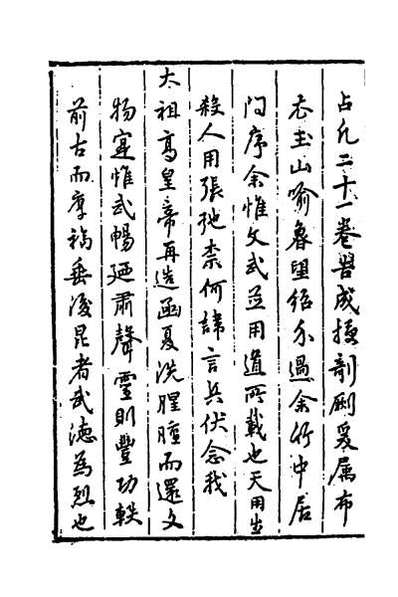 占凡二十一卷業成授剞劂爰属布
衣王山喻魯望紹介過余竹中居
问序余惟文武並用道所載也天用生
殺人用張弛柰何諱言兵伏念我
太祖高皇帝再造函夏洗腥膻而還文
物寔惟武暢廼肅聲靈則豐功軼
前古而厚福垂後昆者武德為烈也